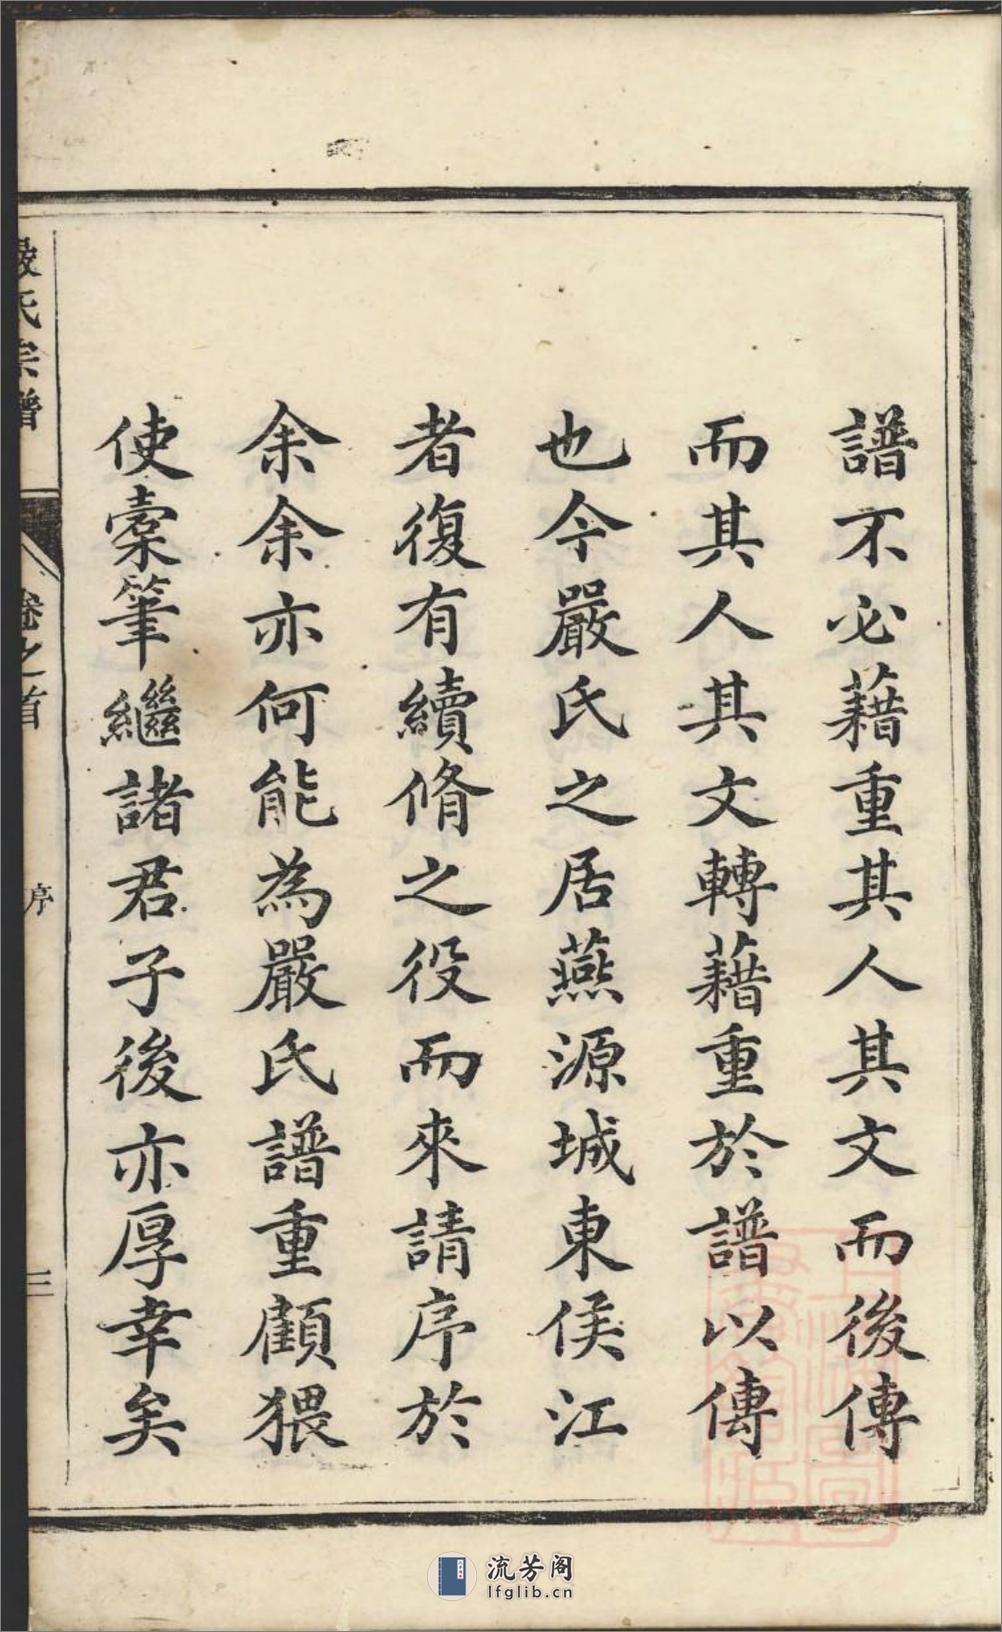 譜不必藉重其人其文而後傳
而其人其文轉藉重於譜以傳
也今嚴氏之居燕源城東侯江
者復有續脩之役而來請序於
余余亦何能為嚴氏譜重顧猥
使橐筆繼諸君子後亦厚幸矣
嚴氏宗譜
卷之首
序
三
流芳阁
lfglib.cn